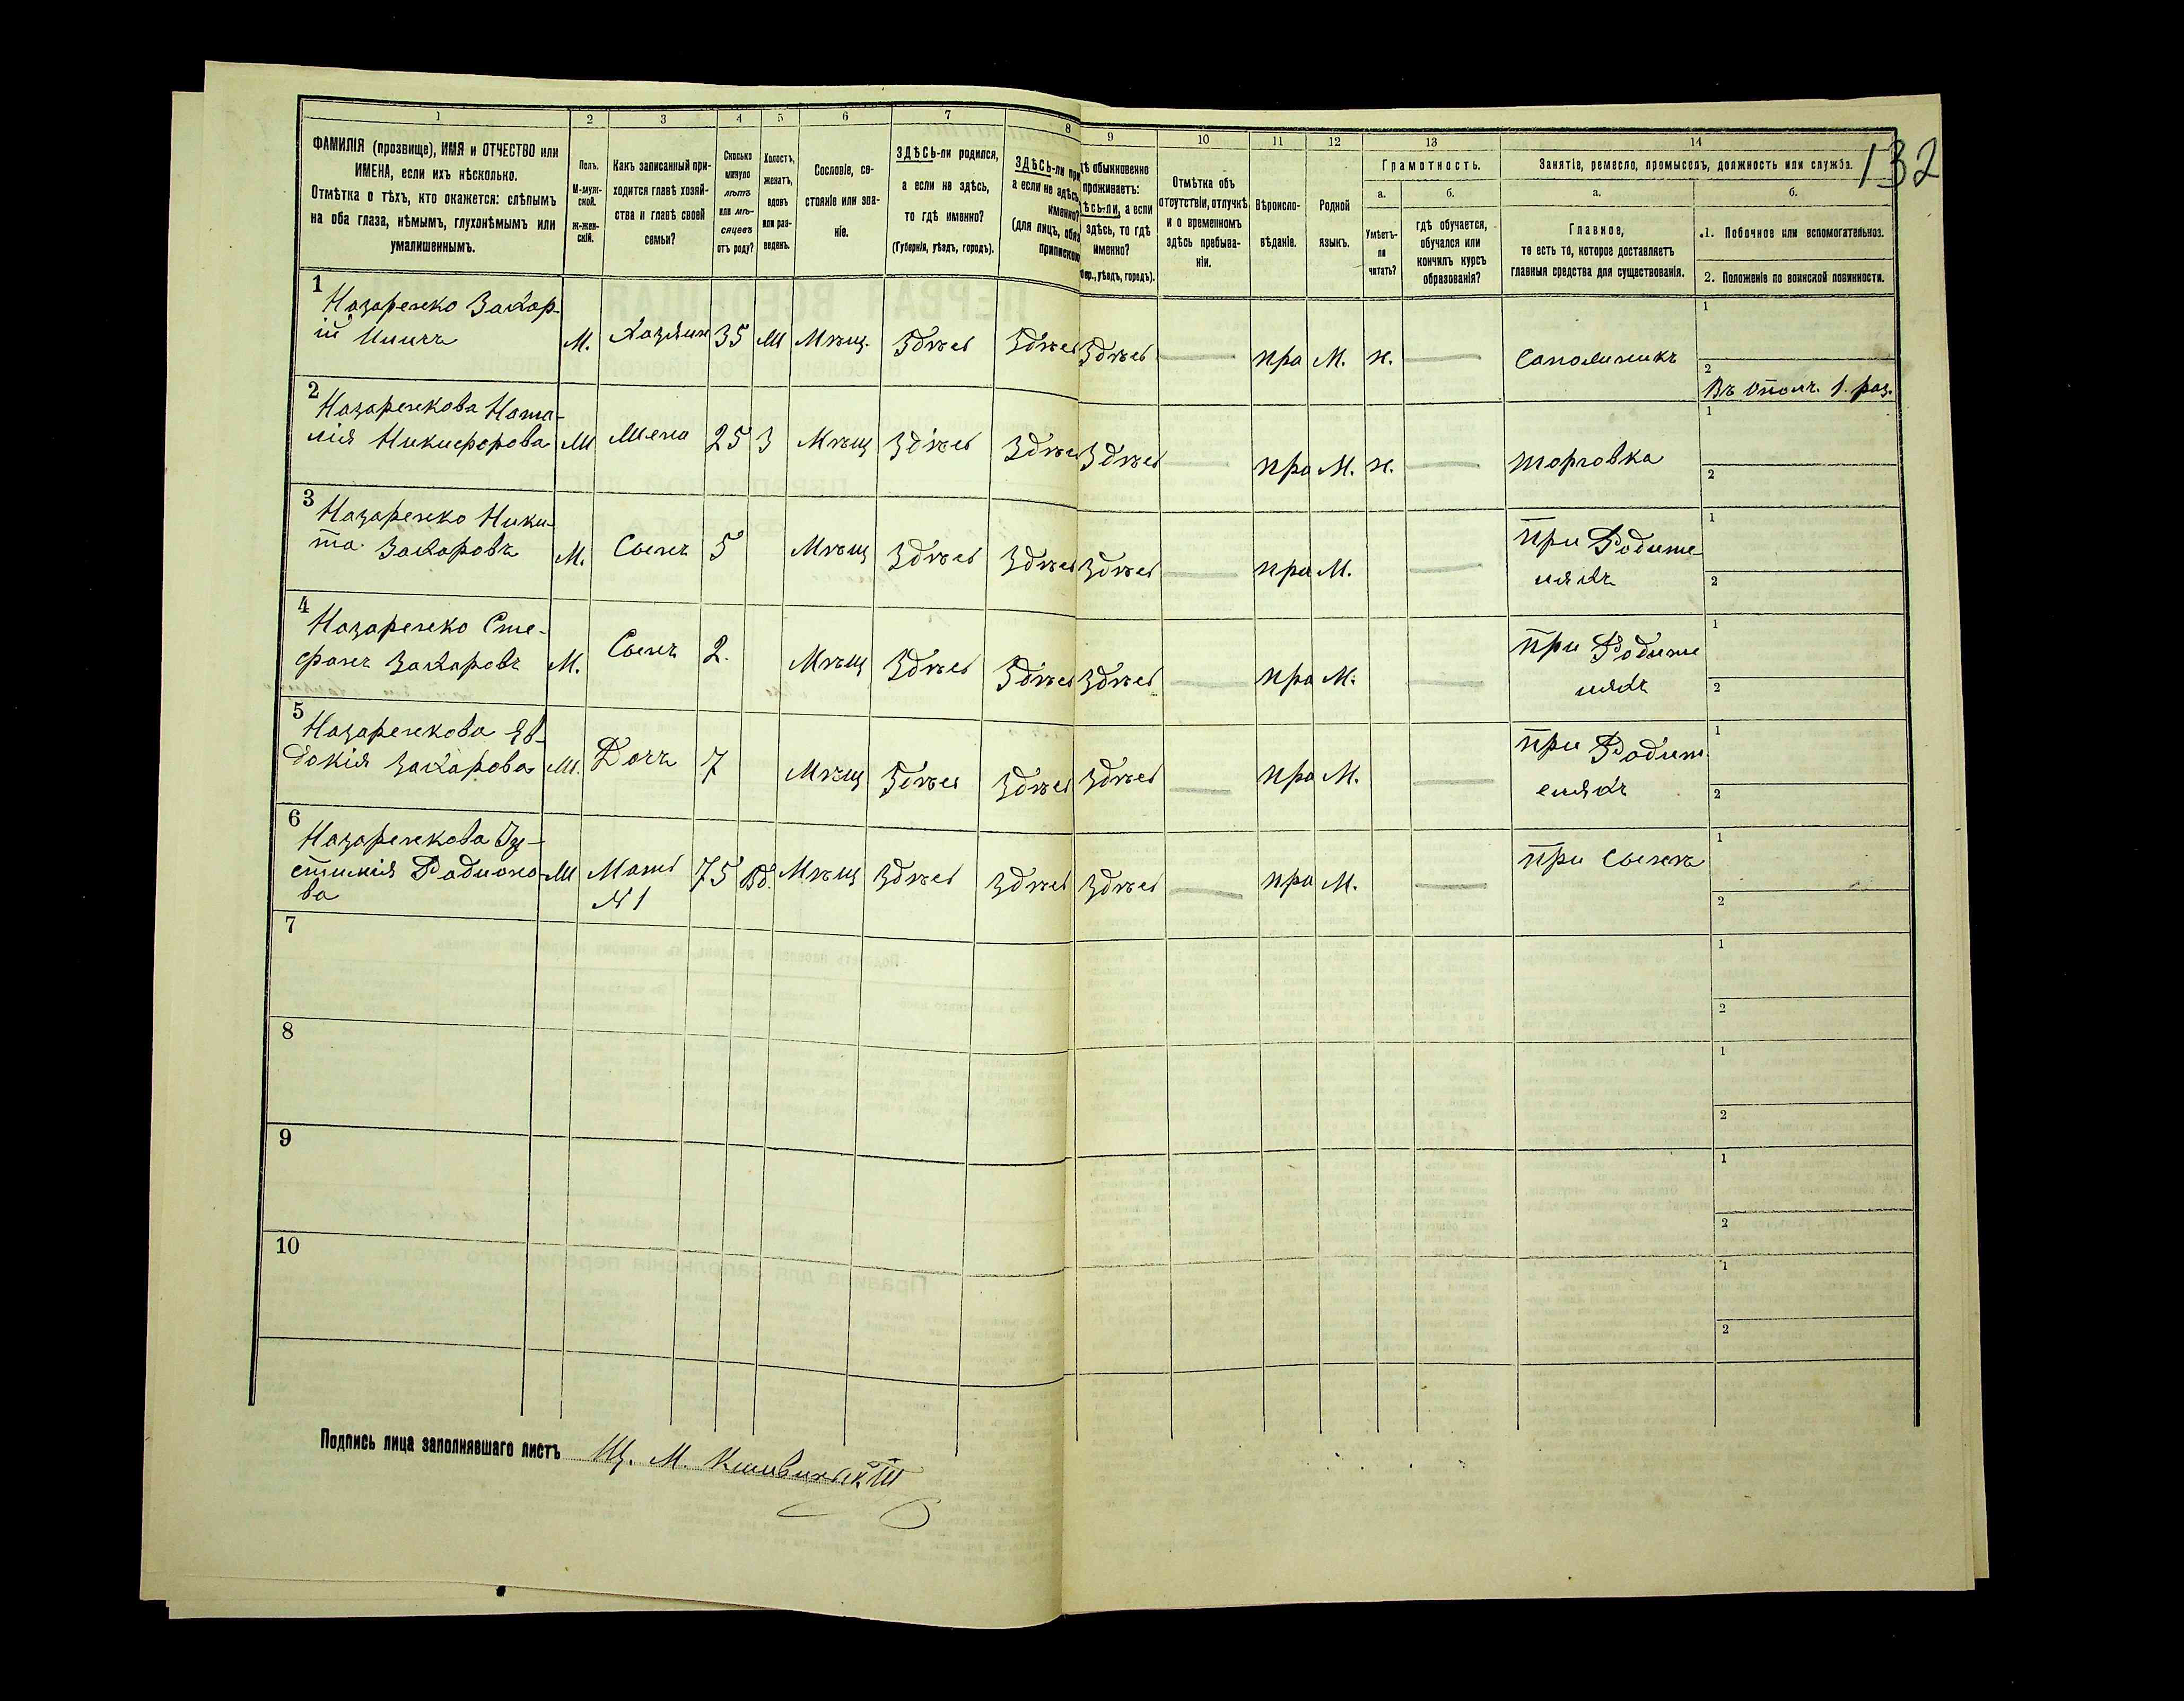 132
1 2 3 4 5 6 7 8 9 10 11 12 13 14
ФАМИЛІЯ (прозвище), ИМЯ и ОТЧЕСТВО или
ИМЕНА, если ихъ нѣсколько.
Отмѣтка о тѣхъ, кто окажется: слѣпымъ
на оба глаза, нѣмымъ, глухонѣмымъ или
умалишеннымъ.
Полъ.
М-муж-
ской.
Ж-жен-
скій.
Какъ записанный при-
ходится главѣ хозяй-
ства и главѣ своей
семьи?
Сколько
минуло
лѣтъ
или мѣ-
сяцевъ
отъ роду?
Холостъ,
женатъ,
вдовъ
или раз-
веденъ.
Сословіе, со-
стояніе или зва-
ніе.
ЗДѢСЬ-ли родился,
а если не здѣсь,
то гдѣ именно?
(Губернія, уѣздъ, городъ).
ЗДѢСЬ-ли при
а если не здѣсь
именно?
(для лицъ, обяз
припискою
ѣ обыкновенно
проживаетъ:
ѢСЬ-ли, а если
здѣсь, то гдѣ
именно?
бер., уѣздъ, городъ).
Отмѣтка объ
отсутствіи, отлучкѣ
и о временномъ
здѣсь пребыва-
ніи.
Вѣроиспо-
вѣданіе.
Родной
языкъ.
Грамотность.
а.
Умѣетъ-
ли
читать?
б.
гдѣ обучается,
обучался или
кончилъ курсъ
образованія?
Занятіе, ремесло, промыселъ, должность или служба.
а.
Главное,
то есть то, которое доставляетъ
главныя средства для существованія.
б.
1. Побочное или вспомогательное.
2. Положеніе по воинской повинности.
1
Назаренко Захар-
ій
М. Хазяин 35 Ж Мѣщ. Здѣсь Здѣсь Здѣсь — пра М. н. —
1
2
Въ Ополч. 1. раз.
2
Назаренкова Ната-
лія Никифорова Ж Жена 25 З Мѣщ Здѣсь Здѣсь Здѣсь — пра М. н. — торговка
1
2
3
Назаренко Ники-
та Захаровъ М. Сынъ 5 Мѣщ Здѣсь Здѣсь Здѣсь — пра М. — при Родите
ляхъ
1
2
4
Назаренко Сте-
фанъ Захаровъ М. Сынъ 2. Мѣщ Здѣсь Здѣсь Здѣсь — пра М. — при Родите
ляхъ
1
2
5
Назаренкова Ев-
докія Захарова Ж. Дочъ 7 Мѣщ Здѣсь Здѣсь Здѣсь — пра М. — при Родит
еляхъ
1
2
6
Назаренкова
Радионо-
ва
Ж Мать 75 Вд. Мѣщ Здѣсь Здѣсь Здѣсь — пра М. — при Сынѣ
№ 1
1
2
7
1
2
8
1
2
9
1
2
10
1
2
Подпись лица заполнявшаго листъ